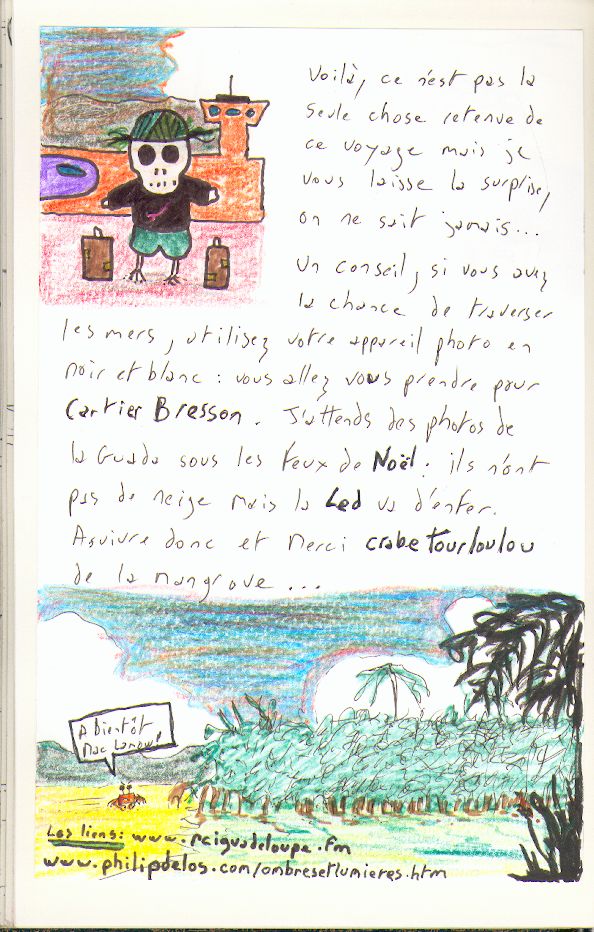 Voilà, ce n'est pas la
seule chose retenue de
ce voyage mais je
vous laisse la surprise,
on ne sait jamais...
Un conseil, si vous avez
la chance de traverser
les mers, utilisez votre appareil photo en
noir et blanc : vous allez vous prendre pour
Cartier Bresson. J'attends des photos de
la Guada sous les feux de Noël : ils n'ont
pas de neige mais la Led va d'enfer.
A suivre donc et Merci crabe Tourloulou
de la mangrove ...
A bientôt
Les liens: www.rciguadeloupe.fm
www.philipdelos.com/ombresetlumieres.htm